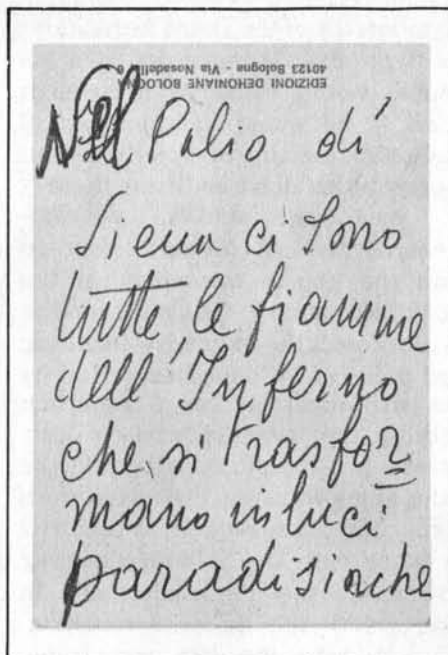 EDIZIONI DEHONIANE BOLOGNA
40123 Bologna - Via Nosadella 6
Nel Palio di
Siena ci sono
tutte le fiamme
dell'Inferno
che si trasfor
mano in luci
paradisiache